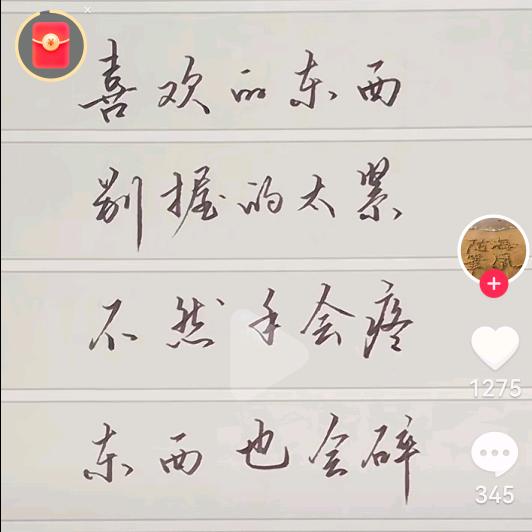 喜欢的东西
别握的太紧
不然手会疼
东西也会碎
1275
345